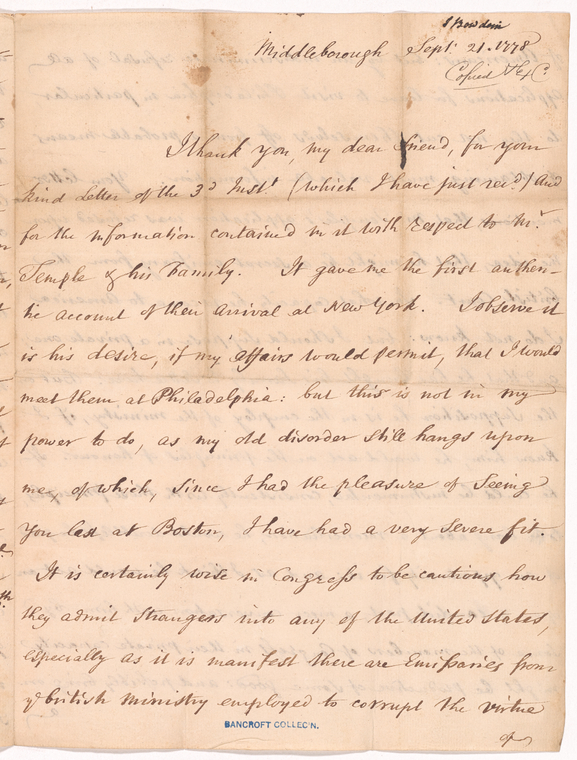 J Bowdoin
Middleborough Sept. 21. 1778
Copied
I thank you, my dear friend, for your
kind Letter of the 3d Inst. (which I have just recd.) and
for the information contained in it with respect to Mr.
Temple & his Family. It gave me the first authen-
tic account of their arrival at New York. I observe it
is his desire, if my affairs would permit, that I would
meet them at Philadelphia: but this is not in my
power to do, as my old disorder still hangs upon
me, of which, since I had the pleasure of Seeing
You last at Boston, I have had a very severe fit.
It is certainly wise in Congress to be cautious how
they admit Strangers into any of the United States,
especially as it is manifest there are Emissaries from
ye british ministry employed to corrupt the virtue
of
BANCROFT COLLEC'N.